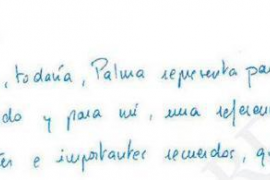 , todavía, Palma representa par
do y para mí, una referen
es e importantes recuerdos, q